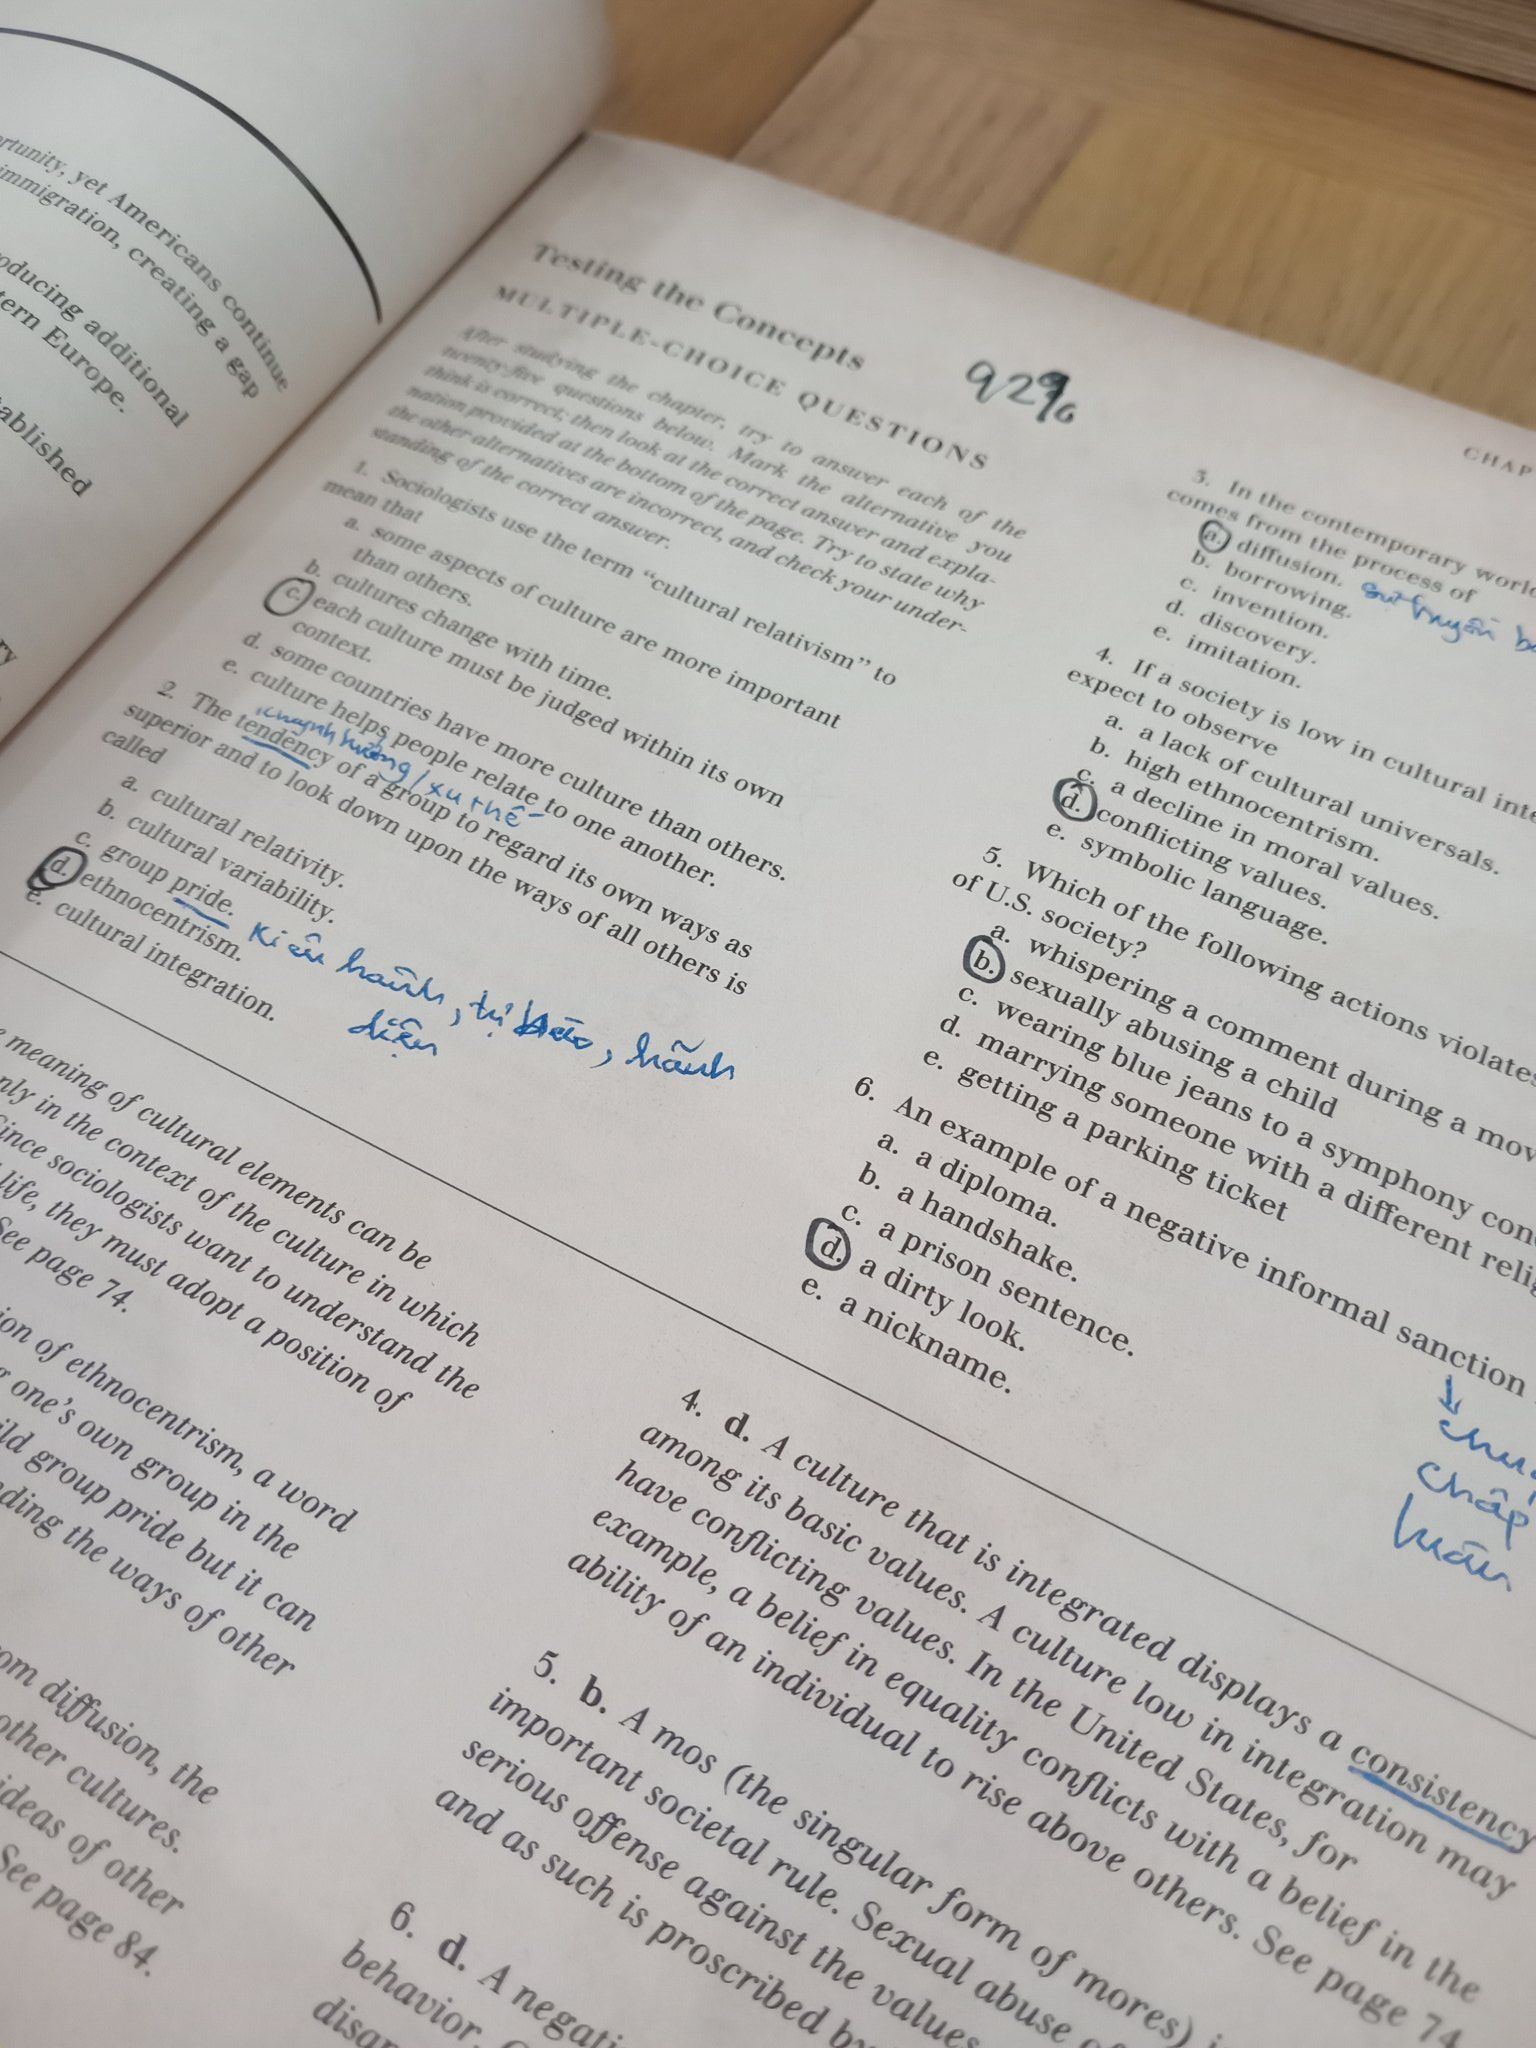 rtunity, yet Americans continue
immigration, creating a gap
oducing additional
tern Europe.
tablished
ry
Testing the Concepts
MULTIPLE-CHOICE QUESTIONS
92%
After studying the chapter, try to answer each of the
twenty-five questions below. Mark the alternative you
think is correct; then look at the correct answer and expla-
nation provided at the bottom of the page. Try to state why
the other alternatives are incorrect, and check your under-
standing of the correct answer.
1. Sociologists use the term “cultural relativism” to
mean that
a. some aspects of culture are more important
than others.
b. cultures change with time.
c. each culture must be judged within its own
context.
d. some countries have more culture than others.
e. culture helps people relate to one another.
khuynh hướng / xu thế
2. The tendency of a group to regard its own ways as
superior and to look down upon the ways of all others is
called
a. cultural relativity.
b. cultural variability.
c. group pride.
Kiêu hãnh, tự hào, hãnh
diện
d. ethnocentrism.
e. cultural integration.
CHAP
3. In the contemporary world
comes from the process of
a. diffusion.
sự truyền
b. borrowing.
c. invention.
d. discovery.
e. imitation.
4. If a society is low in cultural inte
expect to observe
a. a lack of cultural universals.
b. high ethnocentrism.
c. a decline in moral values.
d. conflicting values.
e. symbolic language.
5. Which of the following actions violates
of U.S. society?
a. whispering a comment during a mov
b. sexually abusing a child
c. wearing blue jeans to a symphony con
d. marrying someone with a different relig
e. getting a parking ticket
6. An example of a negative informal sanction
a. a diploma.
b. a handshake.
c. a prison sentence.
d. a dirty look.
e. a nickname.
chấp
meaning of cultural elements can be
nly in the context of the culture in which
Since sociologists want to understand the
life, they must adopt a position of
See page 74.
ion of ethnocentrism, a word
g one’s own group in the
ild group pride but it can
ding the ways of other
om diffusion, the
other cultures.
ideas of other
See page 84.
4. d. A culture that is integrated displays a consistency
among its basic values. A culture low in integration may
have conflicting values. In the United States, for
example, a belief in equality conflicts with a belief in the
ability of an individual to rise above others. See page 74.
5. b. A mos (the singular form of mores) i
important societal rule. Sexual abuse of
serious offense against the values
and as such is proscribed by
6. d. A negati
behavior.
disap